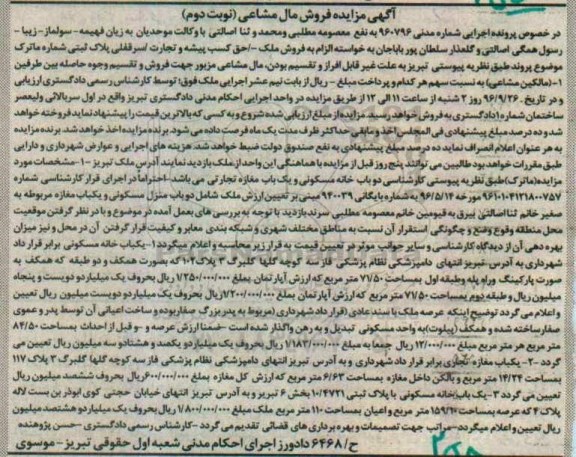 آگهی مزایده فروش مال مشاعی (نوبت دوم)
در خصوص پرونده اجرایی شماره مدنی ۹۶۰۷۹۶ به نفع معصومه مطلبی ومحمد و ثنا اصالتی با وکالت موحدیان به زیان فهیمه - سولماز - زیبا -
رسول همگی اصالتی و گلعذار سلطان پور باباجان به خواسته الزام به فروش ملک - /حق کسب پیشه و تجارت /سرقفلی پلاک ثبتی شماره ماترک
موضوع پرونده طبق نظریه پیوستی تبریز به علت غیر قابل افراز و تقسیم بودن، مال مشاعی مزبور جهت فروش و تقسیم وجوه حاصله بین طرفین
۱-(مالکین مشاعی) به نسبت سهم هر کدام و پرداخت مبلغ - ریال از بابت نیم عشر اجرایی ملک فوق؛ توسط کارشناس رسمی دادگستری ارزیابی
و در تاریخ ۹۶/۹/۲۶ روز ۲ شنبه از ساعت ۱۱ الی ۱۲ از طریق مزایده در واحد اجرایی احکام مدنی دادگستری تبریز واقع در اول سربالائی ولیعصر
ساختمان شماره ۱ دادگستری به فروش خواهد رسید. مزایده از مبلغ ارزیابی شده شروع و به کسی که بالاترین قیمت را پیشنهاد نماید فروخته خواهد
شد و ده درصد مبلغ پیشنهادی فی المجلس اخذ و مابقی حداکثر ظرف مدت یک ماه فرصت داده می شود. برنده مزایده اخذ خواهد شد. برنده مزایده
به هر عنوان اعلام انصراف نماید ده درصد مبلغ پیشنهادی به نفع صندوق دولت ضبط خواهد شد. هزینه های اجرایی و عوارض شهرداری و دارایی
طبق مقررات خواهد بود طالبین می توانند پنج روز قبل از مزایده با هماهنگی این واحد از ملک بازدید نمایند. آدرس ملک تبریز - ۱-مشخصات مورد
مزایده(ماترک)طبق نظریه پیوستی کارشناسی دو باب خانه مسکونی و یک باب مغازه تجارتی می باشد -احتراما در اجرای قرار کارشناسی شماره
۹۶۱۰۱۰۴۱۲۱۸۰۰۷۵۷ مورخه ۹۶/۵/۱۲ به شماره بایگانی ۹۴۰۰۳۹ مبنی بر تعیین ارزش ملک شامل دو باب منزل مسکونی و یکباب مغازه مربوطه به
صغیر خانم ثنا اصالتی بیرق به قیومیت خانم معصومه مطلبی سرند بازدید با توجه به بررسی های بعمل آمده در موضوع و با در نظر گرفتن موقعیت
محل منطقه وقوع وضع و چگونگی استقرار آن نسبت به مناطق مختلف شهری و شبکه بندی معابر و کیفیت قرار گرفتن آن در محل و نیز میزان
بهره دهی آن از دیدگاه کارشناسی و سایر جوانب موثر در تعیین قیمت به قرار زیر محاسبه و اعلام میگردد ۱-یکباب خانه مسکونی برابر قرار داد
شهرداری به آدرس تبریز انتهای دامپزشکی نظام پزشکی فاز سه کوچه گلها گلبرگ ۳ پلاک ۱۰۲ که بصورت همکف و دو طبقه که همکف به
صورت پارکینگ وراه پله وطبقه اول بمساحت ۷۱/۵۰ متر مربع که ارزش آپارتمان بمبلغ ۱/۲۵۰/۰۰۰/۰۰۰ ریال بحروف یک میلیارد و دویست و پنجاه
میلیون ریال و طبقه دوم بمساحت ۷۱/۵۰ متر مربع که ارزش آپارتمان بمبلغ ۱/۲۰۰/۰۰۰/۰۰۰ ریال بحروف یک میلیارد و دویست میلیون ریال تعیین
و اعلام می گردد توضیح اینکه عرصه ملک با سند عادی (قرار داد شهرداری) (مربوط به پدر بزرگ صغار بوده و ساخت اعیانی آن توسط پدر و عموی
صغار ساخته شده و همکف (پیلوت)به واحد مسکونی تبدیل و به رهن واگذار شده است -ضمنا ارزش عرصه و -و قبل از احداث بمساحت ۸۴/۵۰
متر مربع هر متر مربع مبلغ ۱۴/۰۰۰/۰۰۰ ریال جمعا به مبلغ ۱/۱۸۳/۰۰۰/۰۰۰ ریال بحروف یک میلیارد و یکصد و هشتادو سه میلیون ریال تعیین می
گردد -۲- یکباب مغازه تجاری برابر قرار داد شهرداری و به آدرس تبریز انتهای دامپزشکی نظام پزشکی فاز سه کوچه گلها گلبرگ ۳ پلاک ۱۱۷
بمساحت ۱۴/۲۴ متر مربع و بالکن داخل مغازه بمساحت ۶/۶۳ متر مربع که ارزش کل مغازه بمبلغ ۶۰۰/۰۰۰/۰۰۰ ریال بحروف ششصد میلیون ریال
تعیین می گردد ۳-یک باب خانه مسکونی با پلاک ثبتی ۱۰/۴۷۲۱ بخش ۶ تبریز و به آدرس تبریز انتهای خیابان حجتی کوی ابوذر بن بست لاله
پلاک ۴ که عرصه بمساحت ۱۵۹/۱۰ متر مربع و اعیان بمساحت ۱۱۰ متر مربع ملک مبلغ ۱/۸۰۰/۰۰۰/۰۰۰ ریال بحروف یک میلیارد و هشتصد میلیون
ریال تعیین و اعلام میگردد-مراتب جهت تصمیمات و بهره برداری های قضائی تقدیم می گردد -کارشناس رسمی دادگستری - حسن پژوهنده
ح/۶۴۶۸ دادورز اجرای احکام مدنی شعبه اول حقوقی تبریز - موسوی